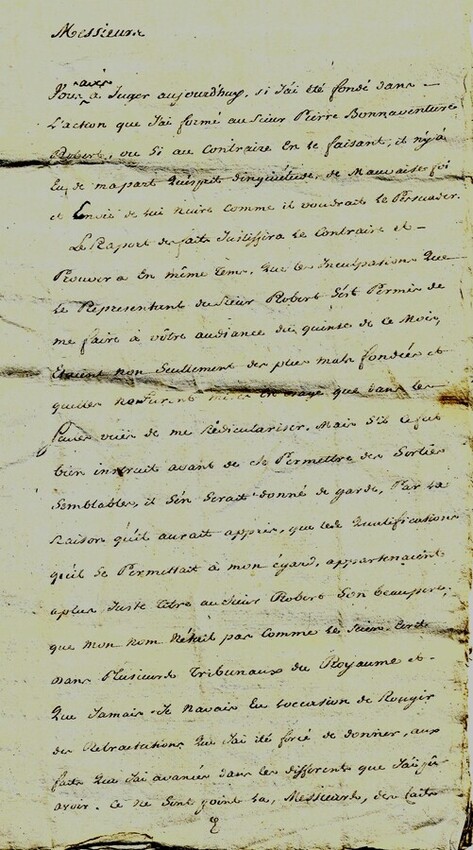 Messieurs
Vous avés à Juger aujourdhuy, si J'ai été fondé dans
L'action que J'ai formé au Sieur Pierre Bonnaventure
Robert, ou si au Contraire En le faisant, il n'y a
Eu, de ma part qu'ésprit d'inquiétude, de Mauvaise foi
et Envie de lui Nuire Comme il voudrait le Persuader.
Le Raport des faits Justifira le Contraire et
Prouvera En même tems, que les Inculpations Que
Le Représentent du Sieur Robert s'ést Permis de
me faire à vôtre audiance du quinse de Ce Mois,
Étaient non Seullement des plus mals fondées et
qu'elles n'onfurent mises en usage que dans les
Seules vuës de me Rédiculariser, Mais S'il Se fut
bien instruit avant de se Permettre des Sorties
Semblables, il S'en Serait donné de garde, Par la
Raison qu'il aurait appris, que les Qualifications
qu'il se Permettait à mon égard, appartenaient
à plus Juste titre au Sieur Robert Son beaupere,
que mon nom N'était pas Comme le Sien Ecrit
dans Plusieurs Tribunaux du Royaume et
Que Jamais Je N'avais Eu L'occasion de Rougir
des Retractations Que J'ai été forcé de donner, aux
faits Que J'ai avancés dans les differents que J'ai pû
avoir. Ce ne Sont point La, Messieurs, des faits